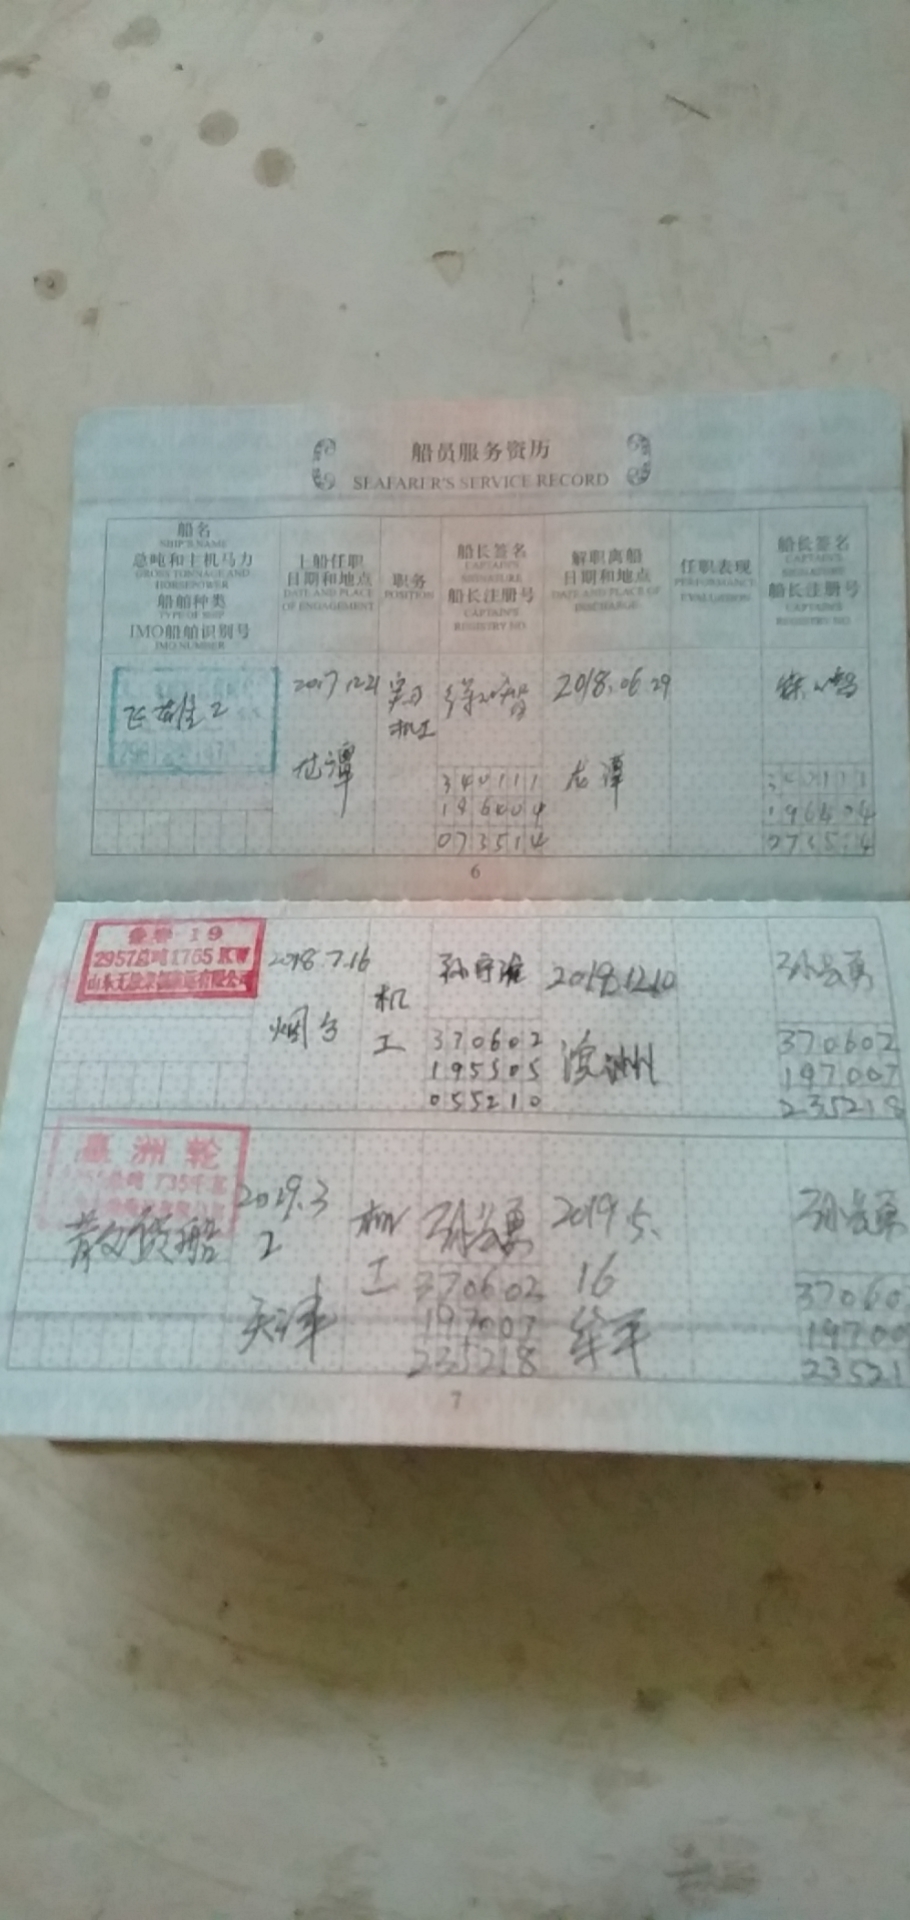 船员服务资历
SEAFARER'S SERVICE RECORD
船名
SHIP'S NAME
总吨和主机马力
GROSS TONNAGE AND
HORSEPOWER
船舶种类
TYPE OF SHIP
IMO船舶识别号
IMO NUMBER
上船任职
日期和地点
DATE AND PLACE
OF ENGAGEMENT
职务
POSITION
船长签名
CAPTAIN'S
SIGNATURE
船长注册号
CAPTAIN'S
REGISTRY NO.
解职离船
日期和地点
DATE AND PLACE OF
DISCHARGE
任职表现
PERFORMANCE
EVALUATION
船长签名
CAPTAIN'S
SIGNATURE
船长注册号
CAPTAIN'S
REGISTRY NO.
2017.12.21
龙潭
实习
机工
340111
196404
073514
2018.06.29
龙潭
340111
196404
073514
6
19
2957总吨1765
2018.7.16
烟台
机
工
孙守淮
370602
195505
055210
2018.12.10
滨洲
370602
197007
235218
洲轮
735
散货船
2019.3
2
天津
机
工
370602
197007
235218
2019.5.
16
牟平
37060
19700
23521
7